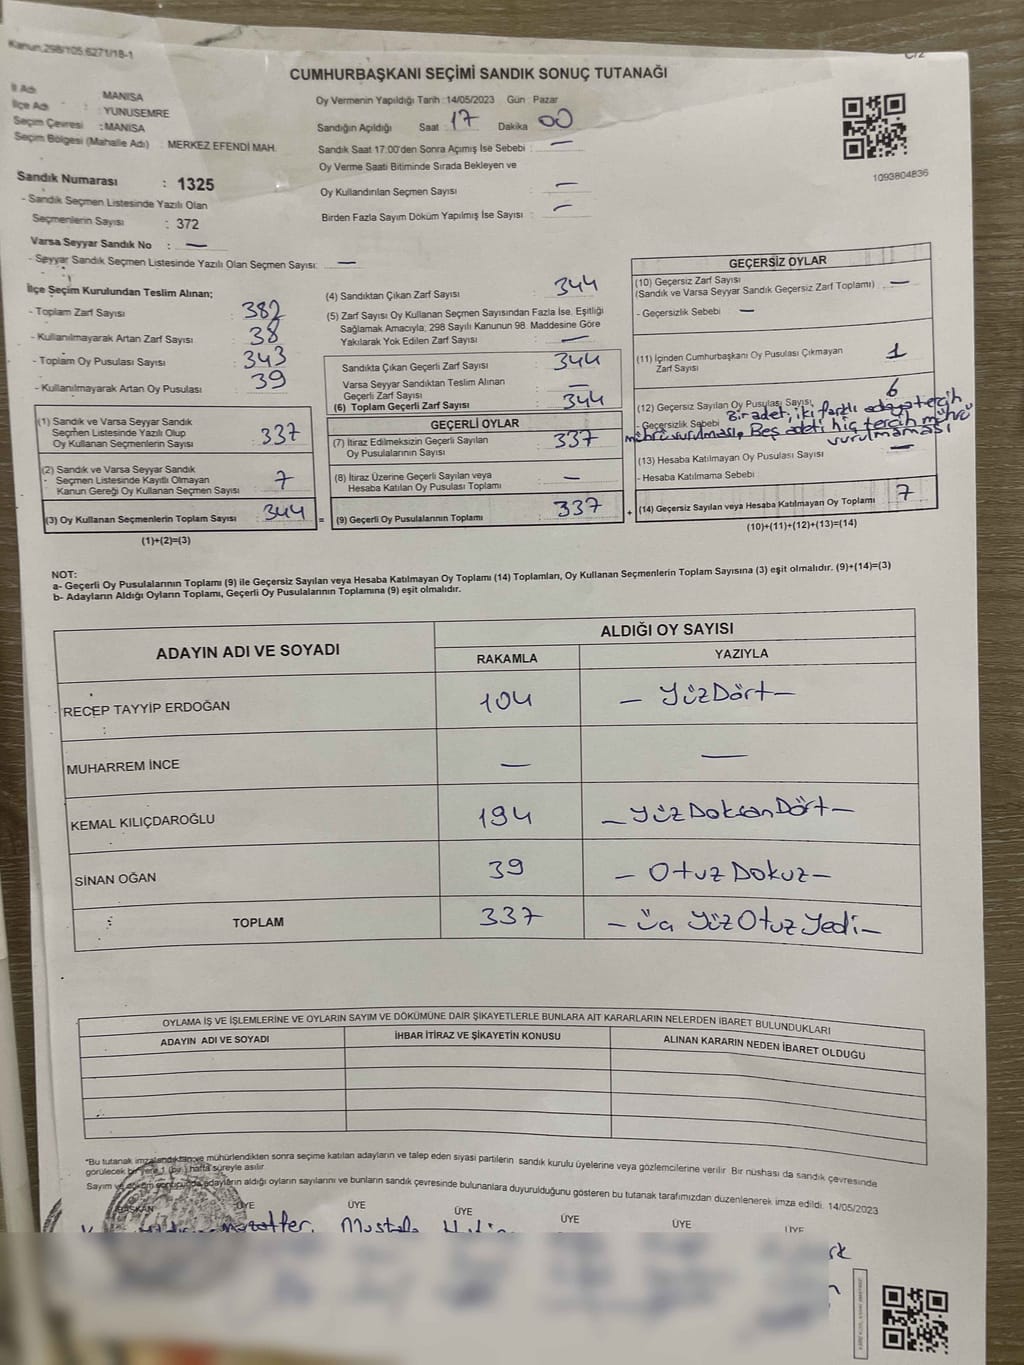 Kanun;298/105,6271/18-1
C/2
CUMHURBAŞKANI SEÇİMİ SANDIK SONUÇ TUTANAĞI
İl Adı : MANİSA
İlçe Adı : YUNUSEMRE
Seçim Çevresi : MANİSA
Seçim Bölgesi (Mahalle Adı) : MERKEZ EFENDİ MAH.
Sandık Numarası : 1325
- Sandık Seçmen Listesinde Yazılı Olan
Seçmenlerin Sayısı : 372
Varsa Seyyar Sandık No : —
- Seyyar Sandık Seçmen Listesinde Yazılı Olan Seçmen Sayısı: —
Oy Vermenin Yapıldığı Tarih : 14/05/2023 Gün : Pazar
Sandığın Açıldığı Saat 17 Dakika 00
Sandık Saat 17:00'den Sonra Açımış İse Sebebi : —
Oy Verme Saati Bitiminde Sırada Bekleyen ve
Oy Kullandırılan Seçmen Sayısı : —
Birden Fazla Sayım Döküm Yapılmış İse Sayısı : —
1093804836
İlçe Seçim Kurulundan Teslim Alınan;
- Toplam Zarf Sayısı : 382
- Kullanılmayarak Artan Zarf Sayısı : 38
- Toplam Oy Pusulası Sayısı : 343
- Kullanılmayarak Artan Oy Pusulası : 39
(1) Sandık ve Varsa Seyyar Sandık
Seçmen Listesinde Yazılı Olup
Oy Kullanan Seçmenlerin Sayısı : 337
(2) Sandık ve Varsa Seyyar Sandık
Seçmen Listesinde Kayıtlı Olmayan
Kanun Gereği Oy Kullanan Seçmen Sayısı : 7
(3) Oy Kullanan Seçmenlerin Toplam Sayısı : 344
(1)+(2)=(3)
(4) Sandıktan Çıkan Zarf Sayısı : 344
(5) Zarf Sayısı Oy Kullanan Seçmen Sayısından Fazla İse, Eşitliği
Sağlamak Amacıyla, 298 Sayılı Kanunun 98. Maddesine Göre
Yakılarak Yok Edilen Zarf Sayısı : —
Sandıkta Çıkan Geçerli Zarf Sayısı : 344
Varsa Seyyar Sandıktan Teslim Alınan
Geçerli Zarf Sayısı : —
(6) Toplam Geçerli Zarf Sayısı : 344
GEÇERLİ OYLAR
(7) İtiraz Edilmeksizin Geçerli Sayılan
Oy Pusulalarının Sayısı : 337
(8) İtiraz Üzerine Geçerli Sayılan veya
Hesaba Katılan Oy Pusulası Toplamı : —
= (9) Geçerli Oy Pusulalarının Toplamı : 337
GEÇERSİZ OYLAR
(10) Geçersiz Zarf Sayısı
(Sandık ve Varsa Seyyar Sandık Geçersiz Zarf Toplamı) : —
- Geçersizlik Sebebi : —
(11) İçinden Cumhurbaşkanı Oy Pusulası Çıkmayan
Zarf Sayısı : 1
(12) Geçersiz Sayılan Oy Pusulası Sayısı : 6
- Geçersizlik Sebebi Bir adet, iki farklı adaya tercih
mührü vurulması, Beş adeti hiç tercih mührü
vurulmaması
(13) Hesaba Katılmayan Oy Pusulası Sayısı : —
- Hesaba Katılmama Sebebi
+ (14) Geçersiz Sayılan veya Hesaba Katılmayan Oy Toplamı : 7
(10)+(11)+(12)+(13)=(14)
NOT:
a- Geçerli Oy Pusulalarının Toplamı (9) ile Geçersiz Sayılan veya Hesaba Katılmayan Oy Toplamı (14) Toplamları, Oy Kullanan Seçmenlerin Toplam Sayısına (3) eşit olmalıdır. (9)+(14)=(3)
b- Adayların Aldığı Oyların Toplamı, Geçerli Oy Pusulalarının Toplamına (9) eşit olmalıdır.
ADAYIN ADI VE SOYADI ALDIĞI OY SAYISI
RAKAMLA YAZIYLA
RECEP TAYYİP ERDOĞAN 104 — YüzDört —
MUHARREM İNCE — —
KEMAL KILIÇDAROĞLU 194 — YüzDoksanDört —
SİNAN OĞAN 39 — OtuzDokuz —
TOPLAM 337 — üç YüzOtuzYedi —
OYLAMA İŞ VE İŞLEMLERİNE VE OYLARIN SAYIM VE DÖKÜMÜNE DAİR ŞİKAYETLERLE BUNLARA AİT KARARLARIN NELERDEN İBARET BULUNDUKLARI
ADAYIN ADI VE SOYADI İHBAR İTİRAZ VE ŞİKAYETİN KONUSU ALINAN KARARIN NEDEN İBARET OLDUĞU
*Bu tutanak imzalandıktan ve mühürlendikten sonra seçime katılan adayların ve talep eden siyasi partilerin sandık kurulu üyelerine veya gözlemcilerine verilir. Bir nüshası da sandık çevresinde
görülecek bir yere 1 (bir) hafta süreyle asılır.
Sayım ve döküm sonucunda adayların aldığı oyların sayılarını ve bunların sandık çevresinde bulunanlara duyurulduğunu gösteren bu tutanak tarafımızdan düzenlenerek imza edildi. 14/05/2023
BAŞKAN ÜYE ÜYE ÜYE ÜYE ÜYE ÜYE
Mustafa